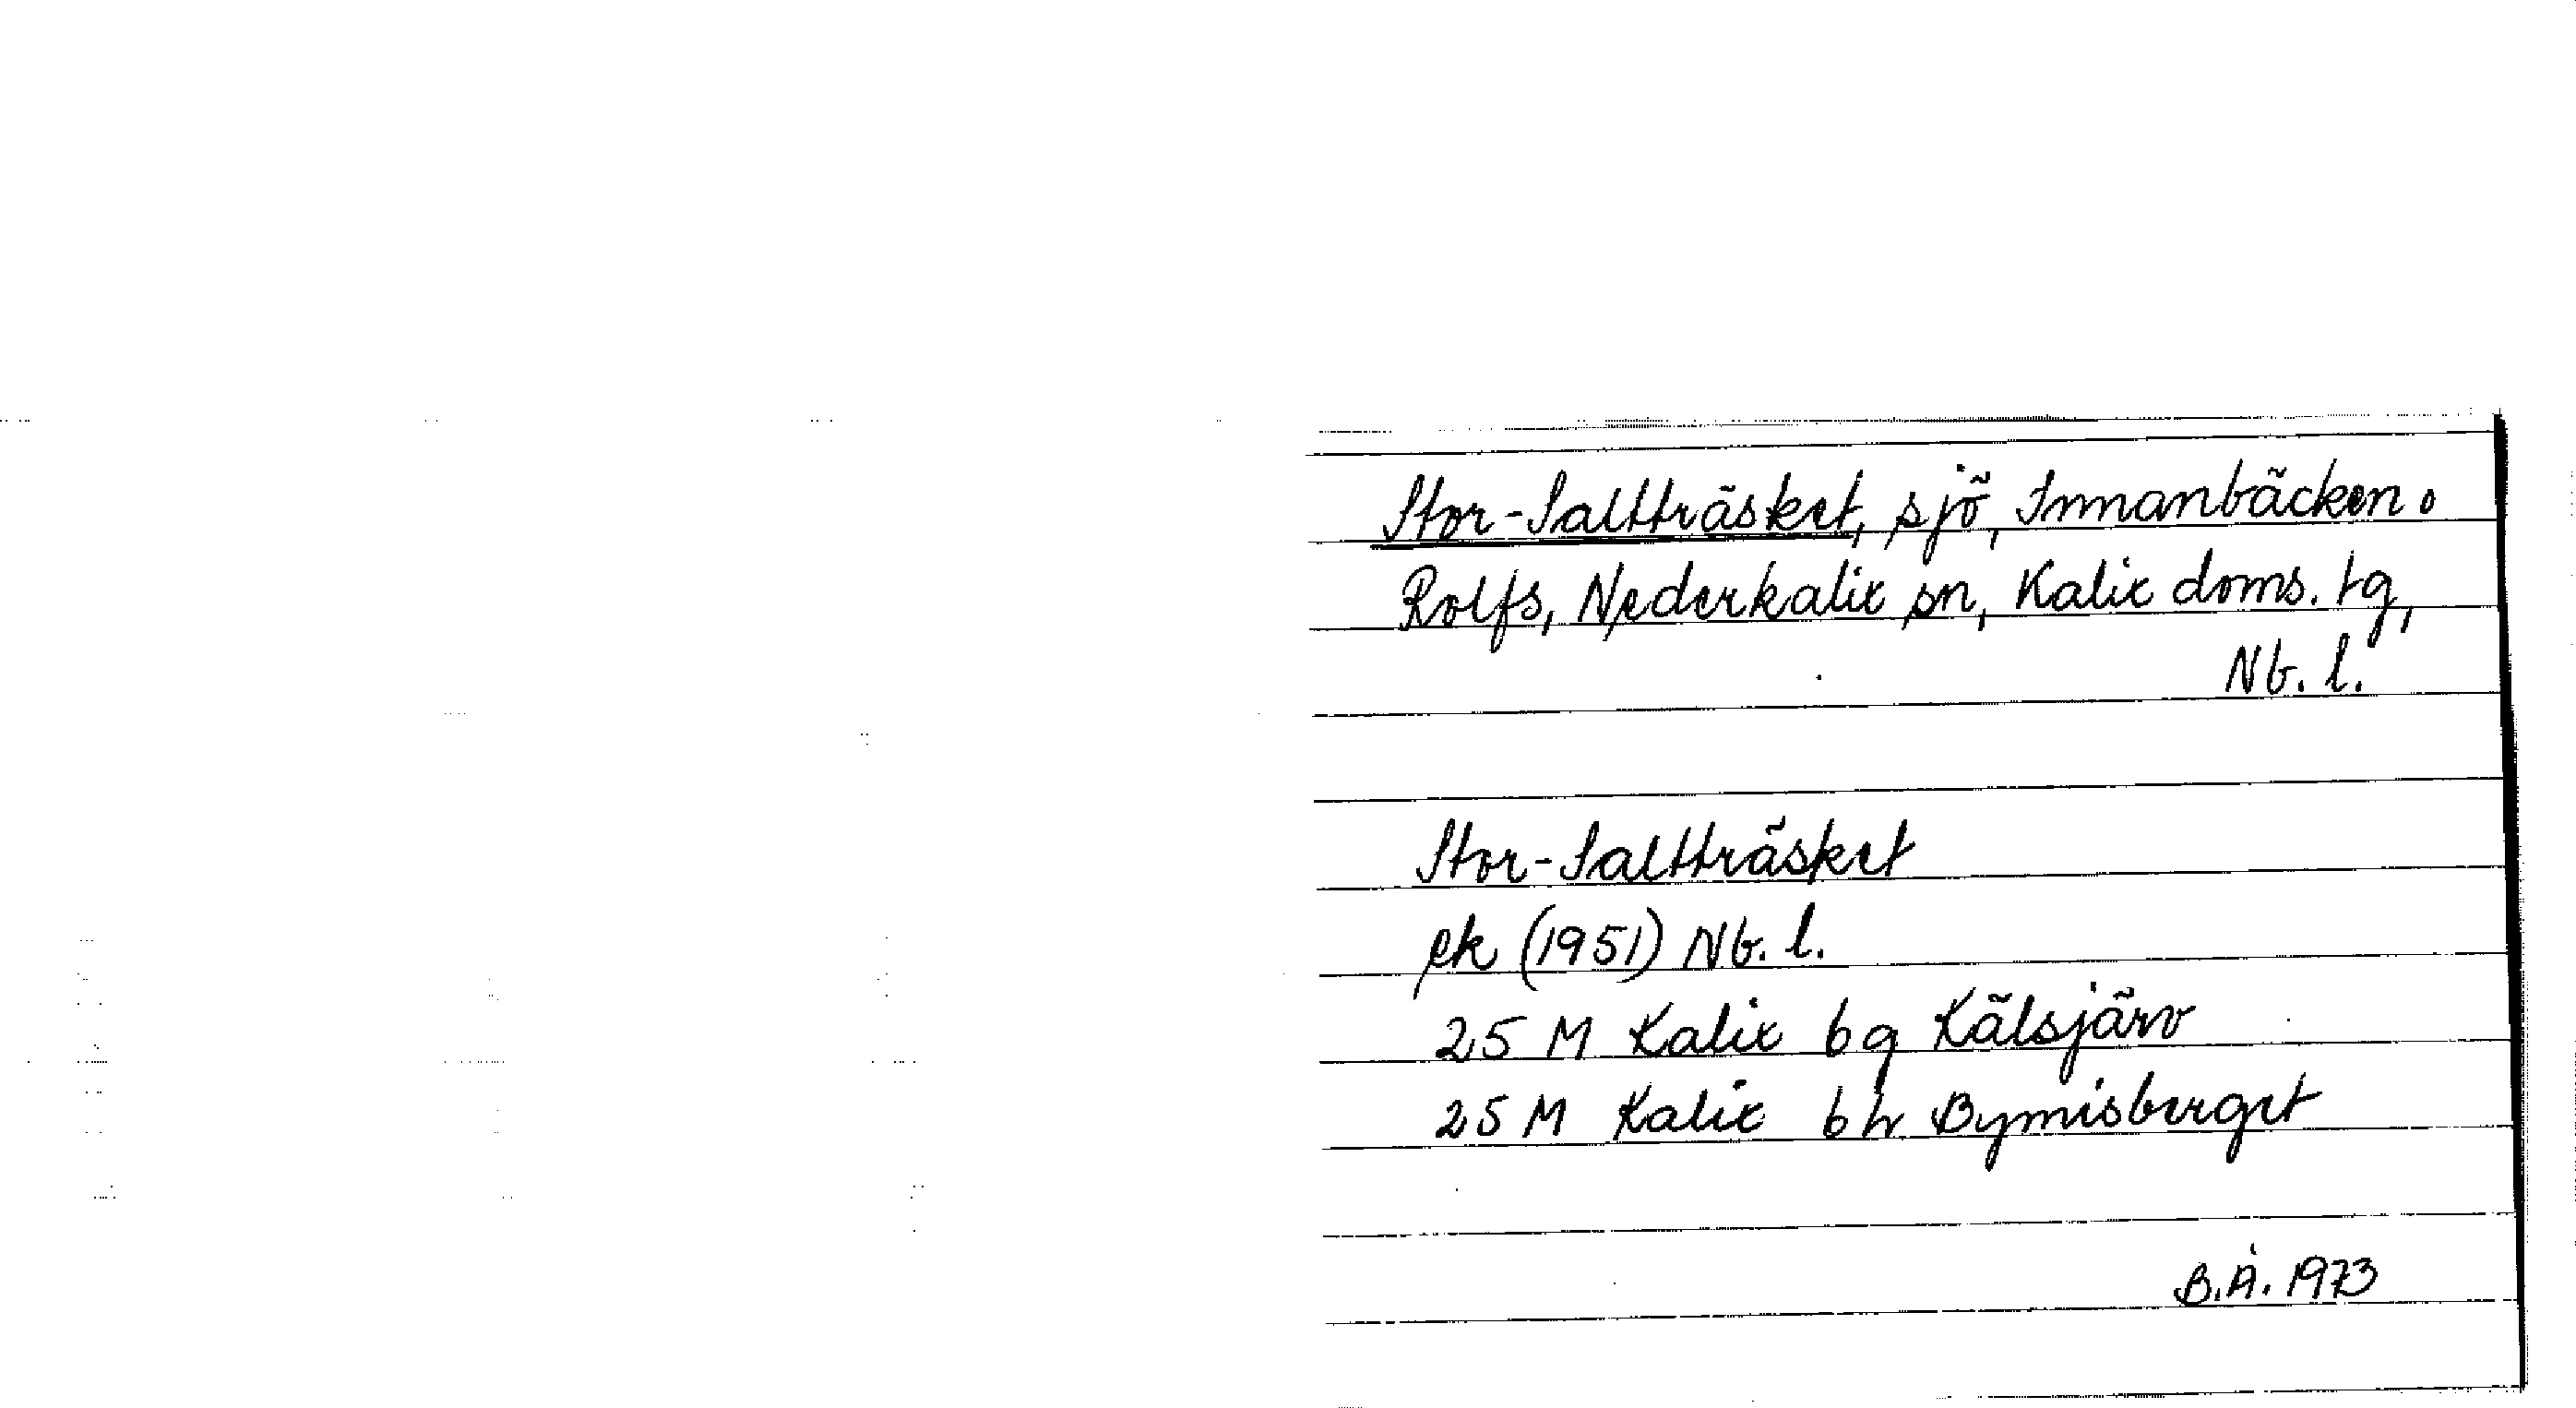 Stor-Saltträsket, sjö, Innanbäcken o
Rolfs, Nederkalix sn, Kalix doms. tg,
Nb. l.
Stor-Saltträsket
ek (1951) Nb. l.
25 M Kalix 6 g Kälsjärv
25 M Kalix 6 h Bymisberget
B.Å. 1973